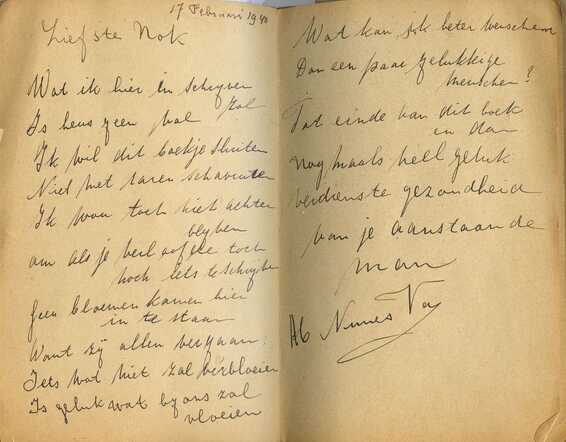 17 Februari 1940
Liefste Nok
Wat ik hier in schrijven
Is heus geen bal zal
Ik wil dit boekje sluiten
Niet met
Ik wou toch niet achter
blyben
om als je verloofde toch
noch iets te schrijben
Geen bloemen kamen hier
in te staan
Want zij allen bergaan:
Iets wat niet zal verbloeien
Is geluk wat by ons zal
vloeien
Wat kan ik beter wenschen
Dan een paar gelukkige
menschen?
Tot einde van dit boek
en dan
nog maals heel geluk
verdienste gezondheid
van je aanstaande
man
Ab Nunes Vas